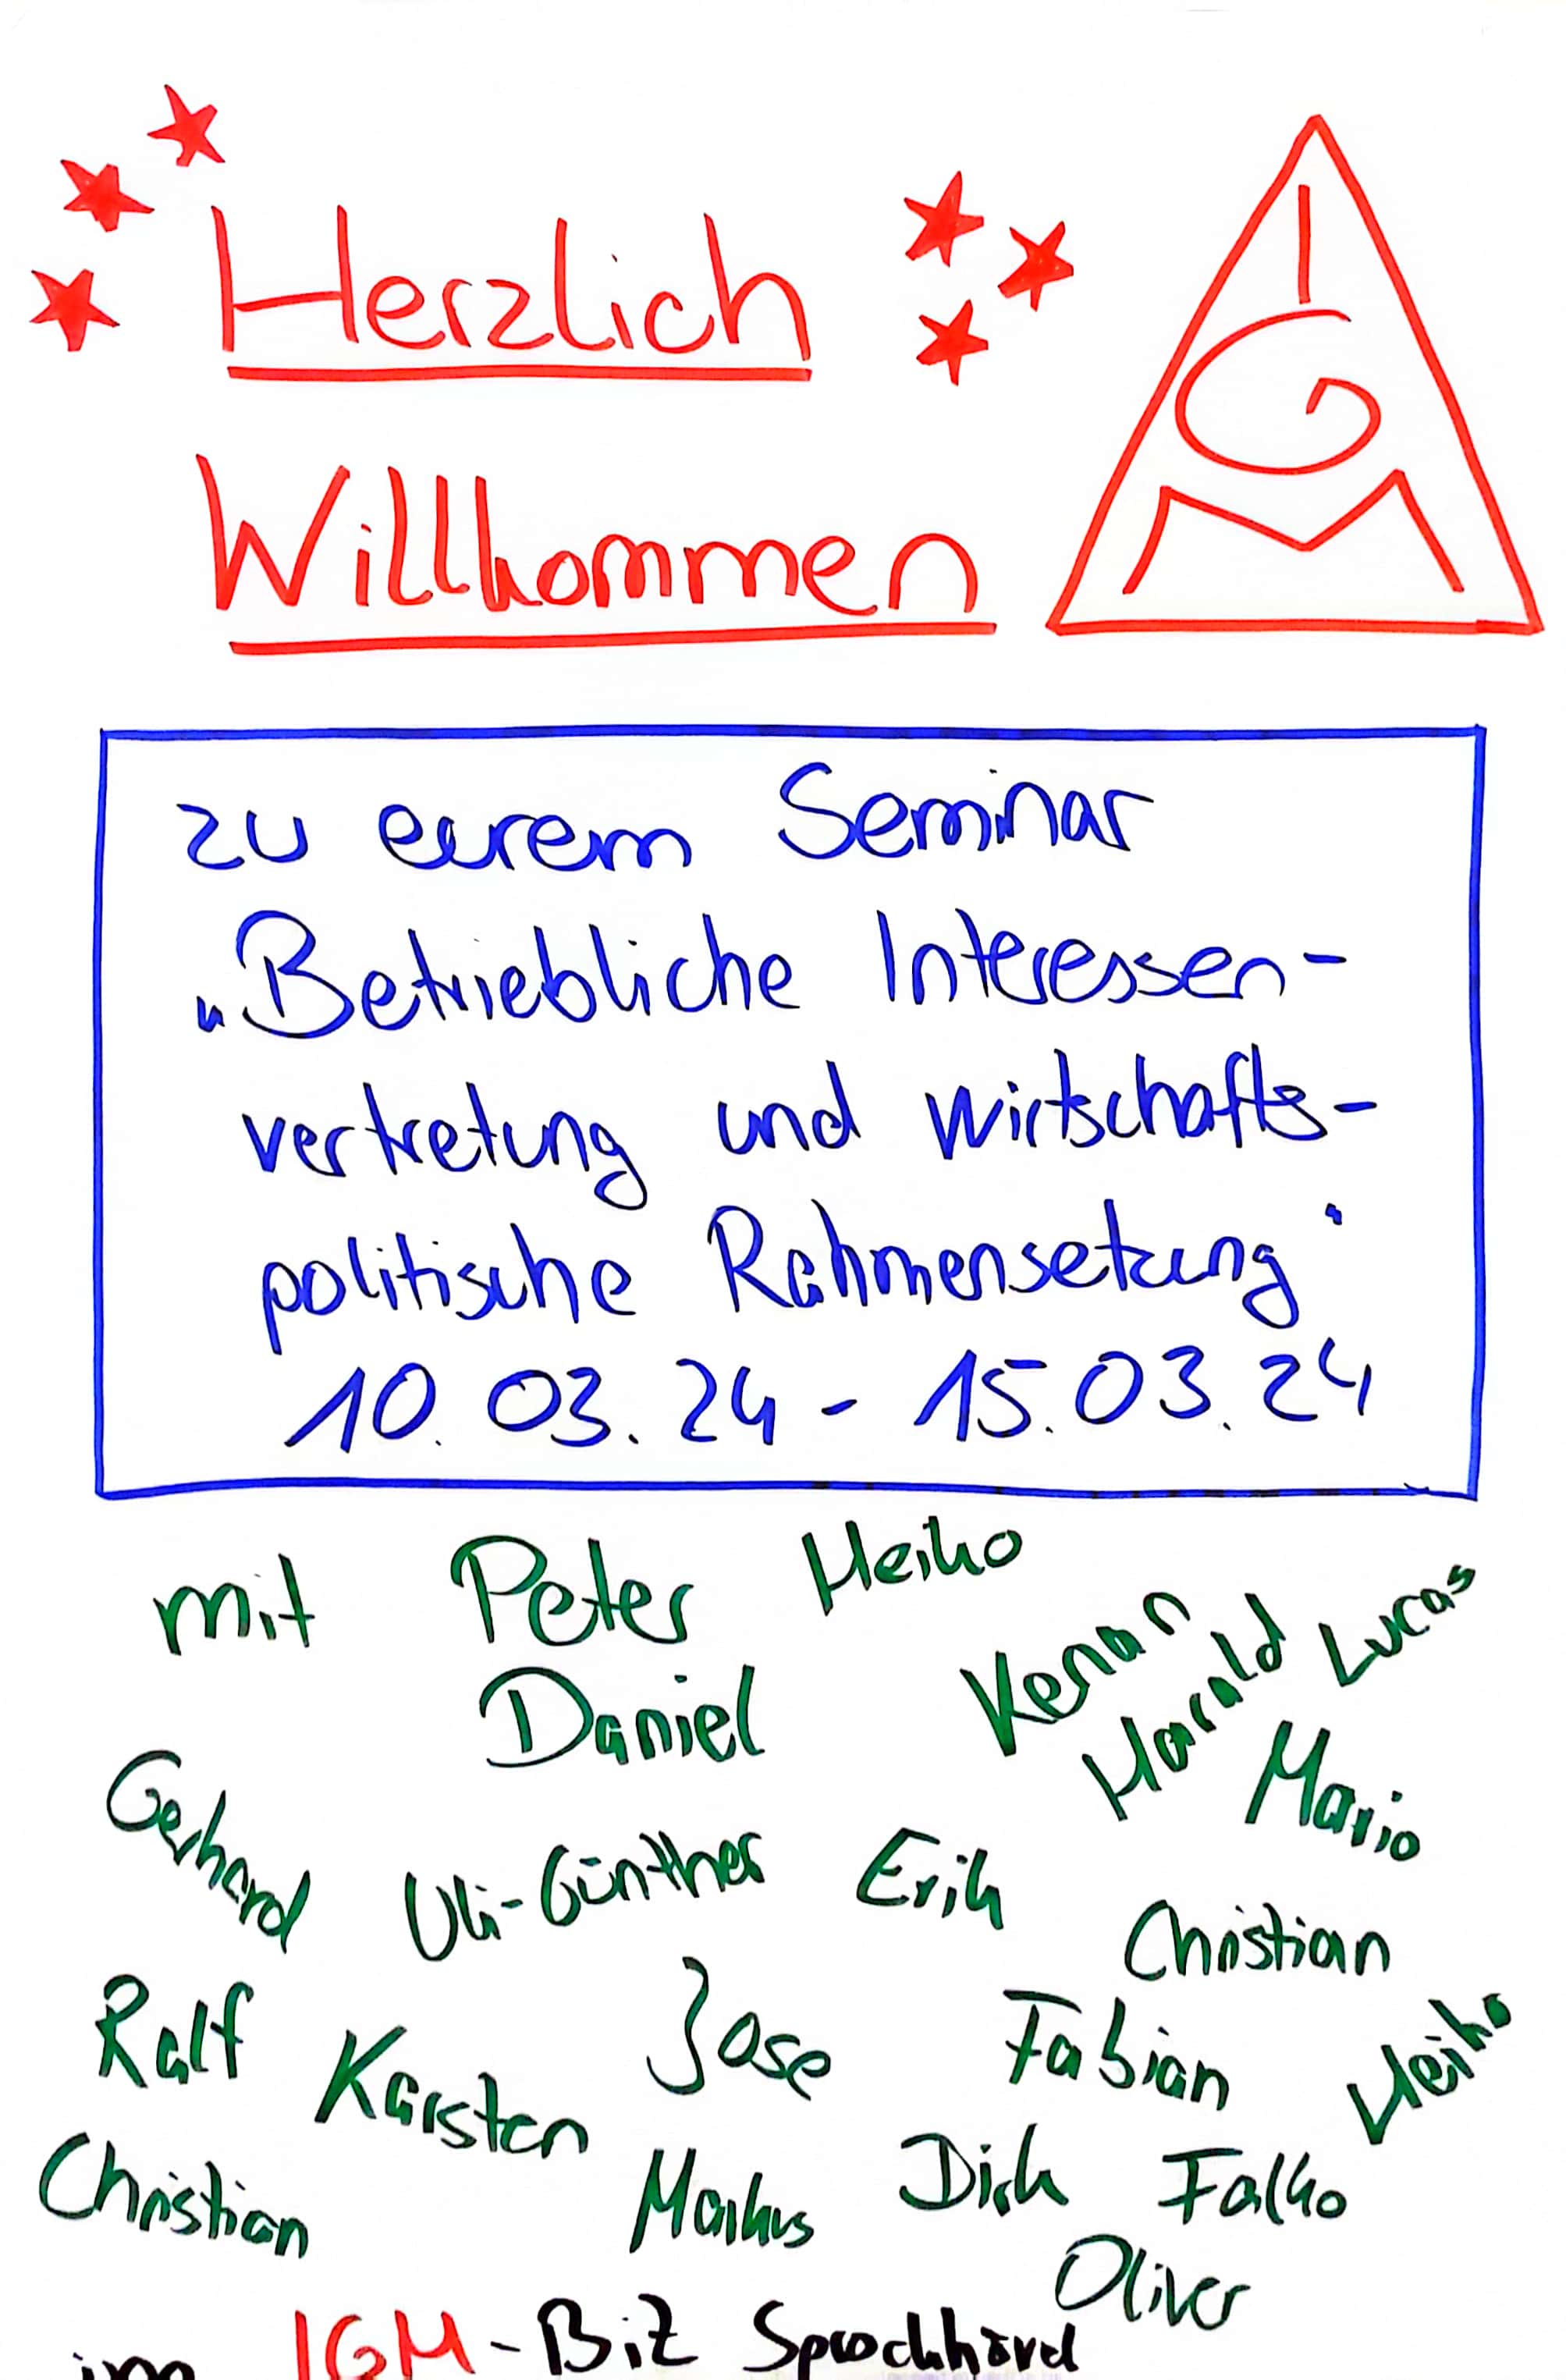 Herzlich
Willkommen
I
G
M
zu eurem Seminar
„Betriebliche Interessen-
vertretung und wirtschafts-
politische Rahmensetzung“
10.03.24 - 15.03.24
mit Peter Heiko
Daniel Kenan Harald Lucas
Gerhard Uli-Günther Erik Mario
Christian
Ralf Karsten Jose Fabian Heiko
Christian Markus Dirk Falko
Oliver
im IGM-BiZ Sprockhövel